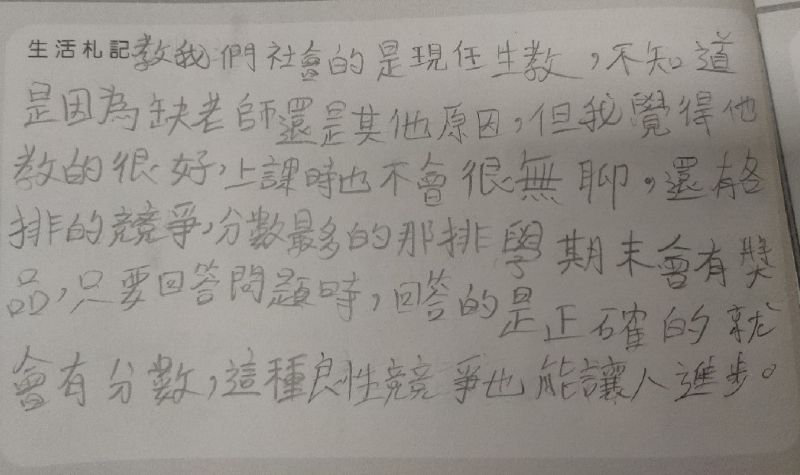 生活札記教我們社會的是現任生教，不知道
是因為缺老師還是其他原因，但我覺得他
教的很好，上課時也不會很無聊，還有各
排的競爭，分數最多的那排學期末會有獎
品，只要回答問題時，回答的是正確的就
會有分數，這種良性競爭也能讓人進步。